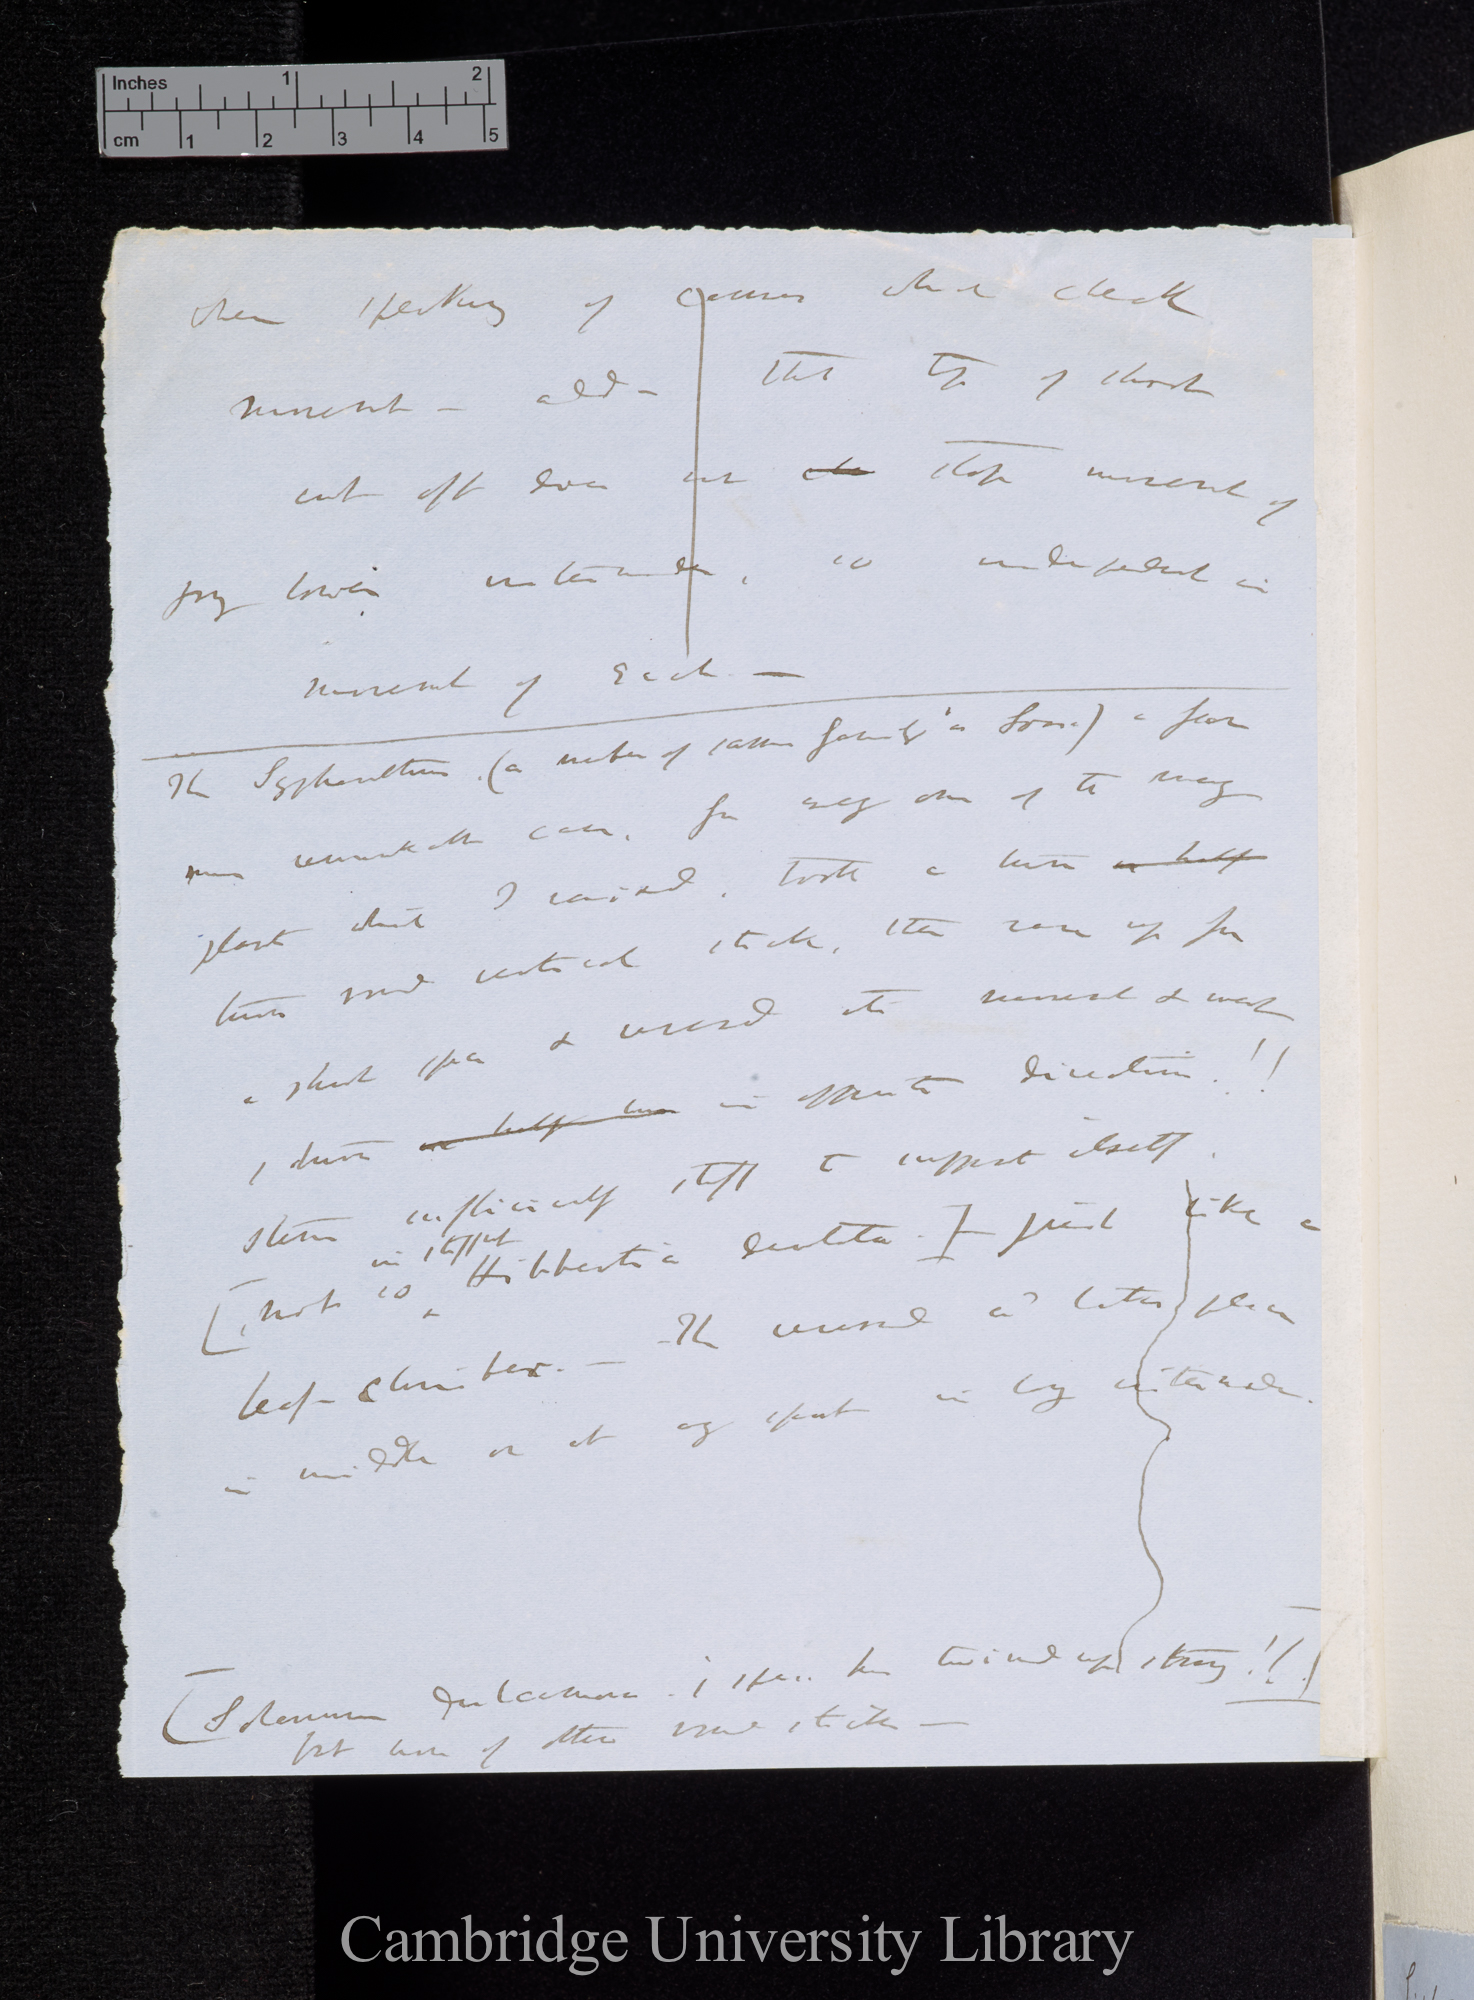 Inches 1 2
cm 1 2 3 4 5
When speaking of causes which check
movement — add — that tip of shoot
cut off does not stop movement of
lower internodes, so independent in
movement of Each. —
The Scyphanthus (a member of same family as Loasa) is
more remarkable case, for every one of the many
plants which I raised, took a turn or half
turn round vertical stick, then ran up for
a short space & reversed its movement & went
1 turn or half turn in opposite direction.!!
Stem sufficiently stiff to support itself.
in stiffest
[not so Hibbertia dentata.] — just like a
leaf-climber. — The reversal took place
in middle or at any part in long internode.
[Solanum dulcamara. I has twined up string!!]
but none of other round sticks —
Cambridge University Library